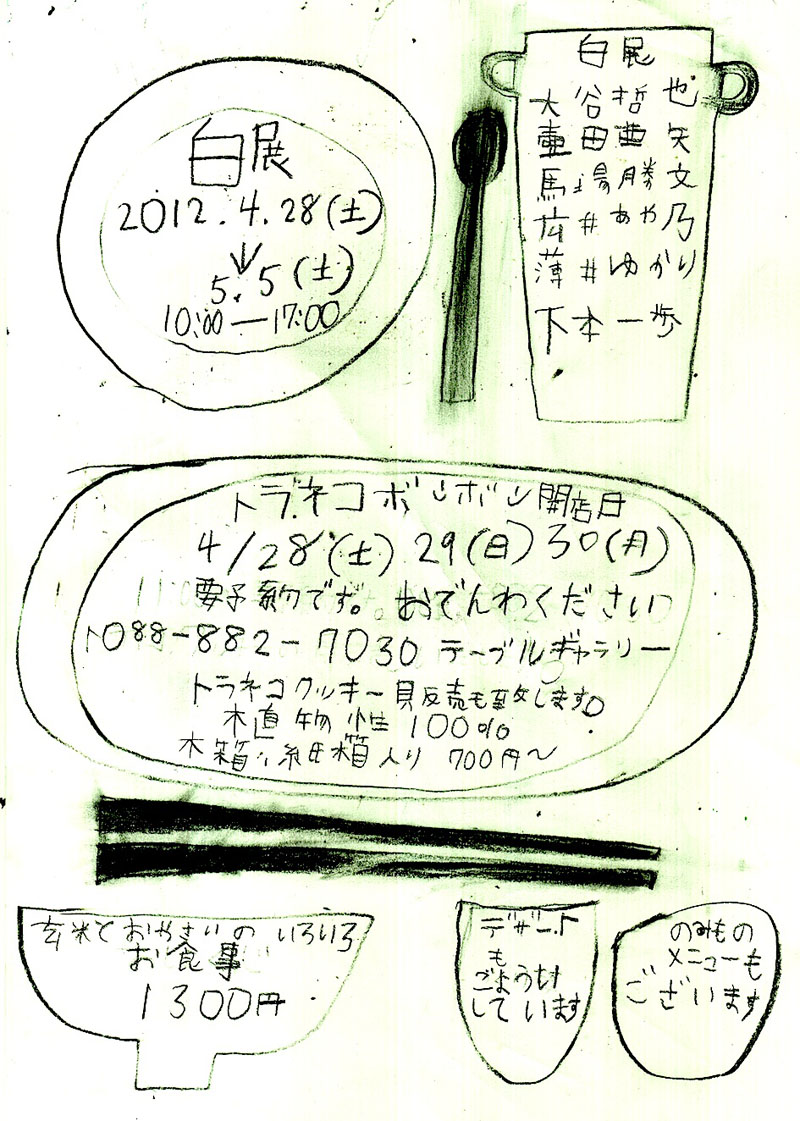 白展
2012.4.28(土)
↓
5.5(土)
10:00—17:00
白展
大谷哲也
壷田亜矢
馬場勝文
広井あや乃
薄井ゆかり
下本一歩
トラネコボンボン開店日
4/28(土)29(日)30(月)
要予約です。おでんわください
088-882-7030 テーブルギャラリー
トラネコクッキー販売も致します。
植物性100%
木箱、紙箱入り 700円〜
玄米とおやさいのいろいろ
お食事
1300円
デザート
も
ごようい
しています
のみもの
メニューも
ございます